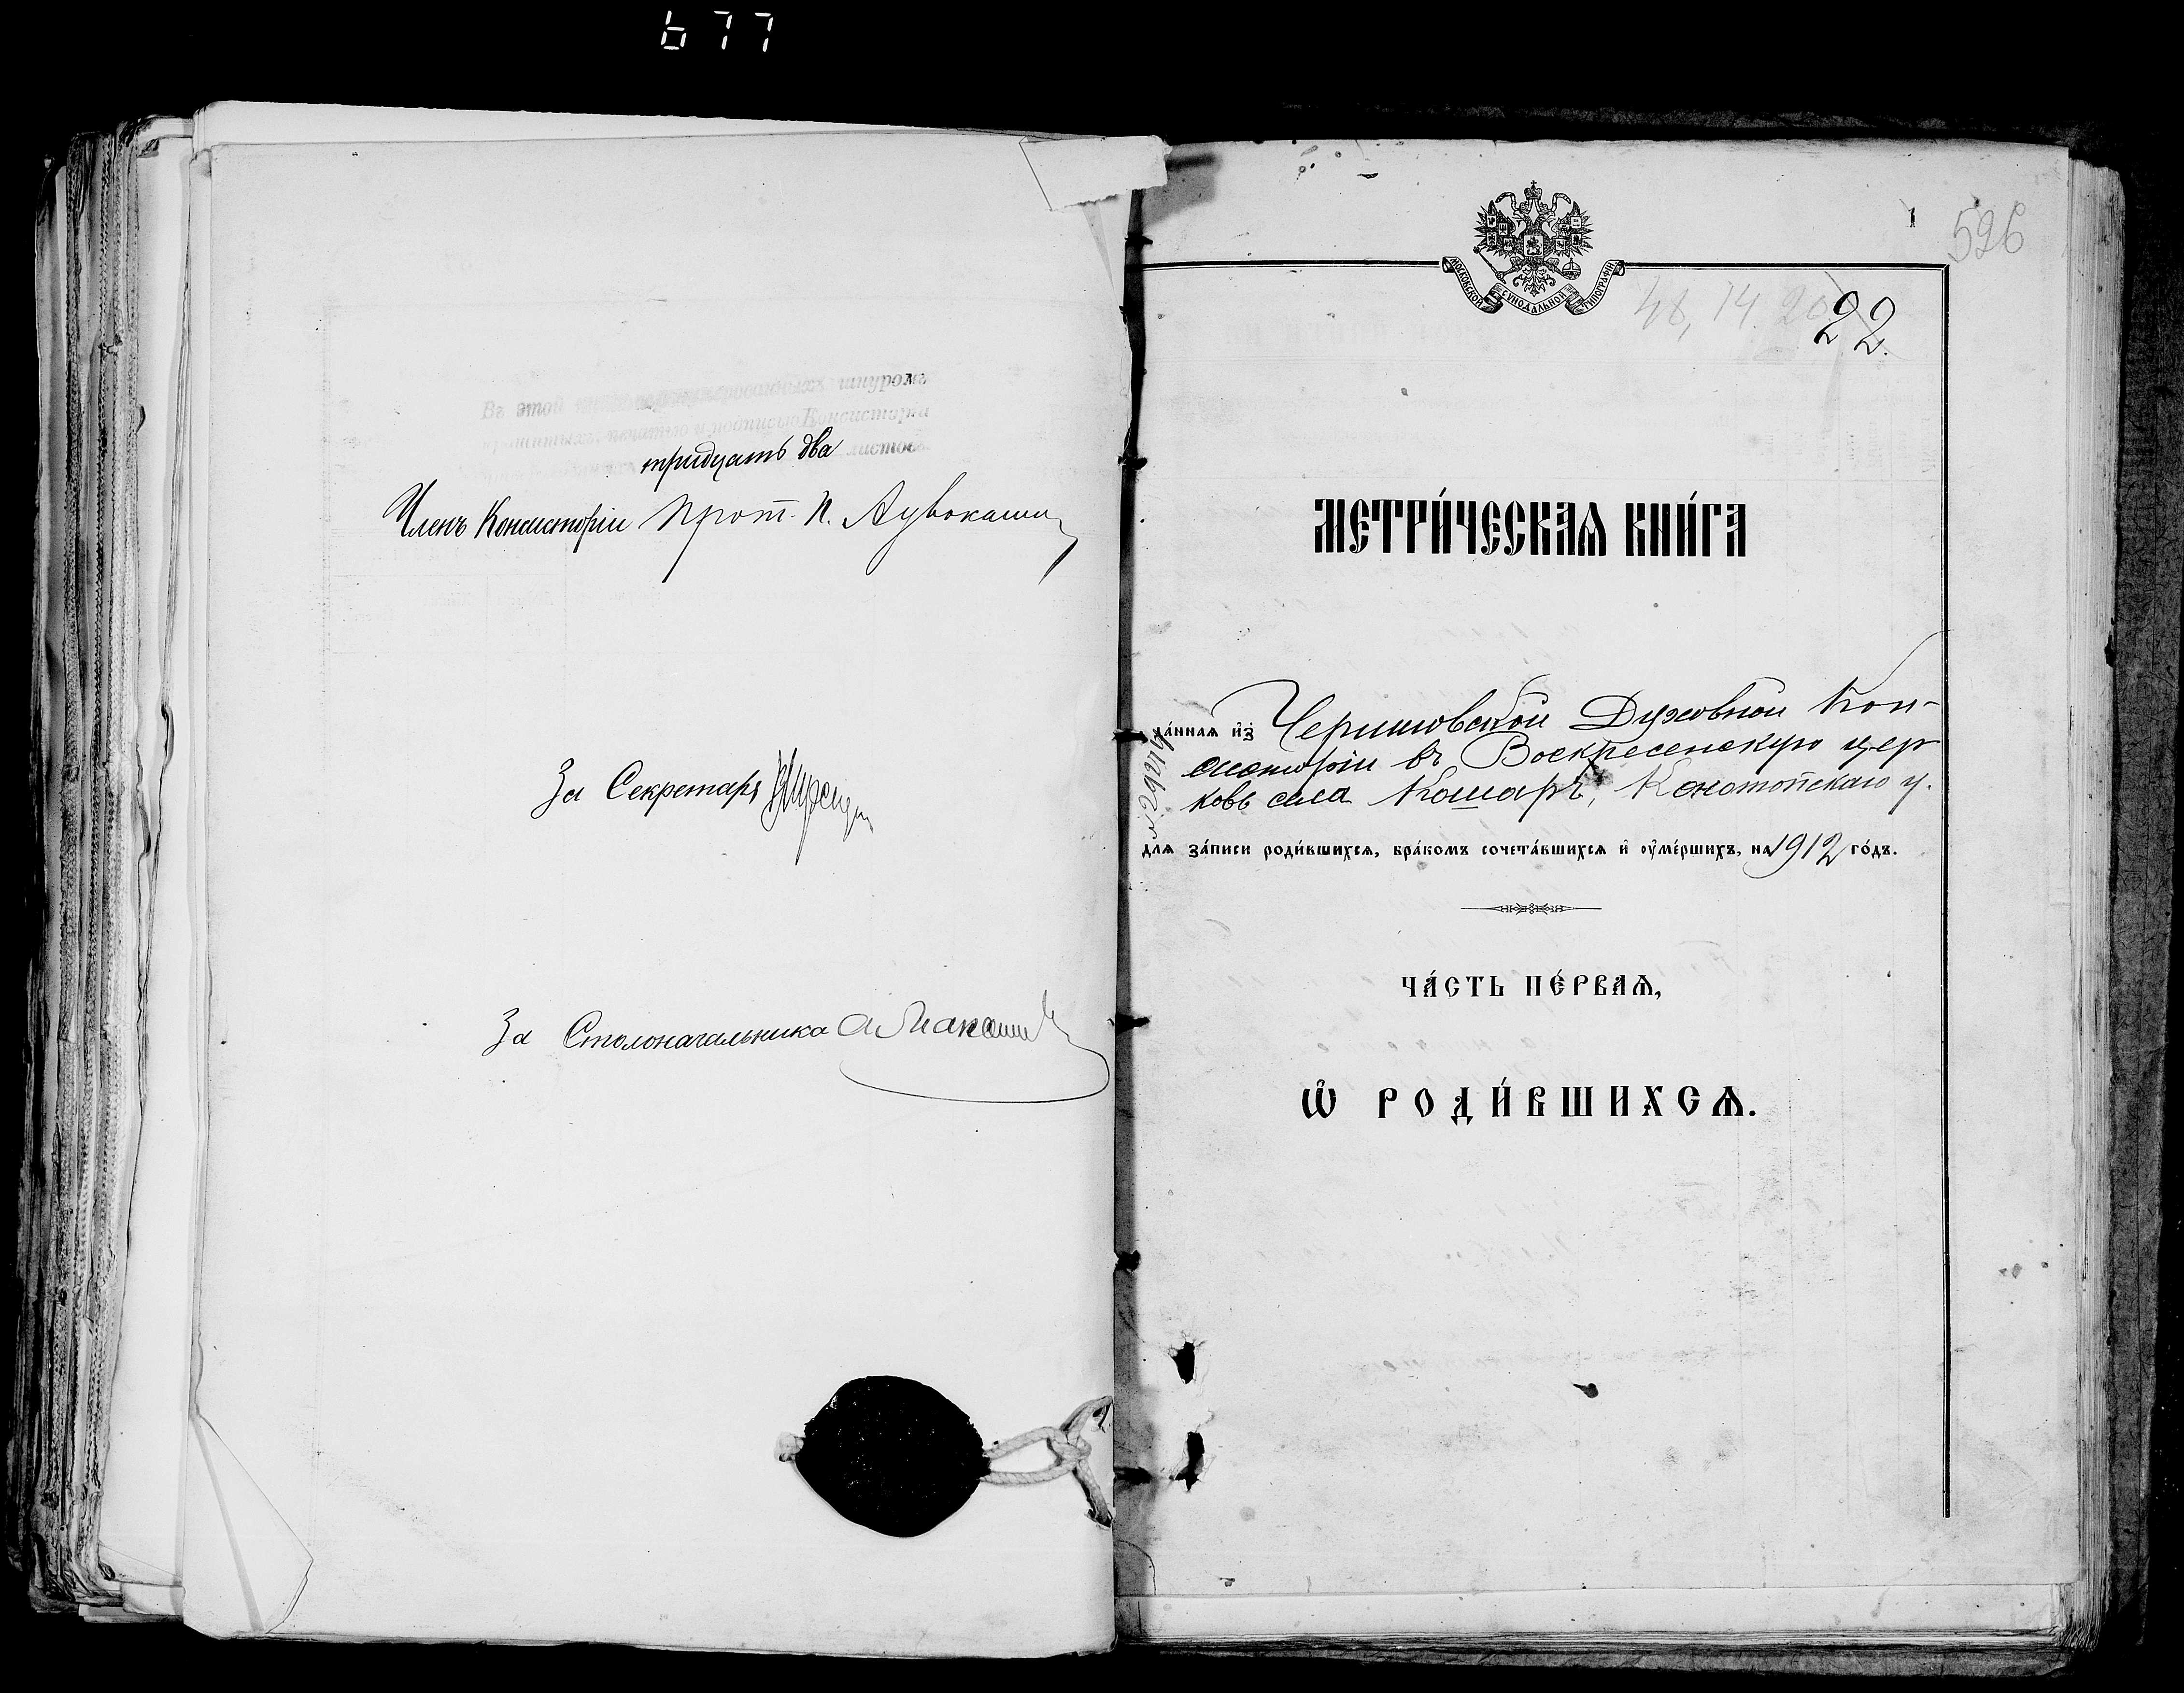 677
Въ этой шнуромъ
печатью и подписью Консисторіи
тридцать два листовъ
Членъ Консисторіи Прот. П.
За Секретаря
За Столоначальника
1
526
МОСКОВСКОЙ СѴНОДАЛЬНОЙ ТИПОГРАФІИ
48, 14. 20
22.
МЕТРИ́ЧЕСКАѦ КНИ́ГА
да́ннаѧ и҆з̾ Черниговской Духовной Кон-
систоріи въ Воскресенскую цер
ковь села Кошаръ, Конотопскаго у.
длѧ за́писи роди́вшихсѧ, бра́комъ сочета́вшихсѧ и҆ ᲂу҆ме́ршихъ, на 1912 го́дъ.
ЧА́СТЬ ПЕ́РВАѦ,
Ѽ РОДИ́ВШИХСѦ.